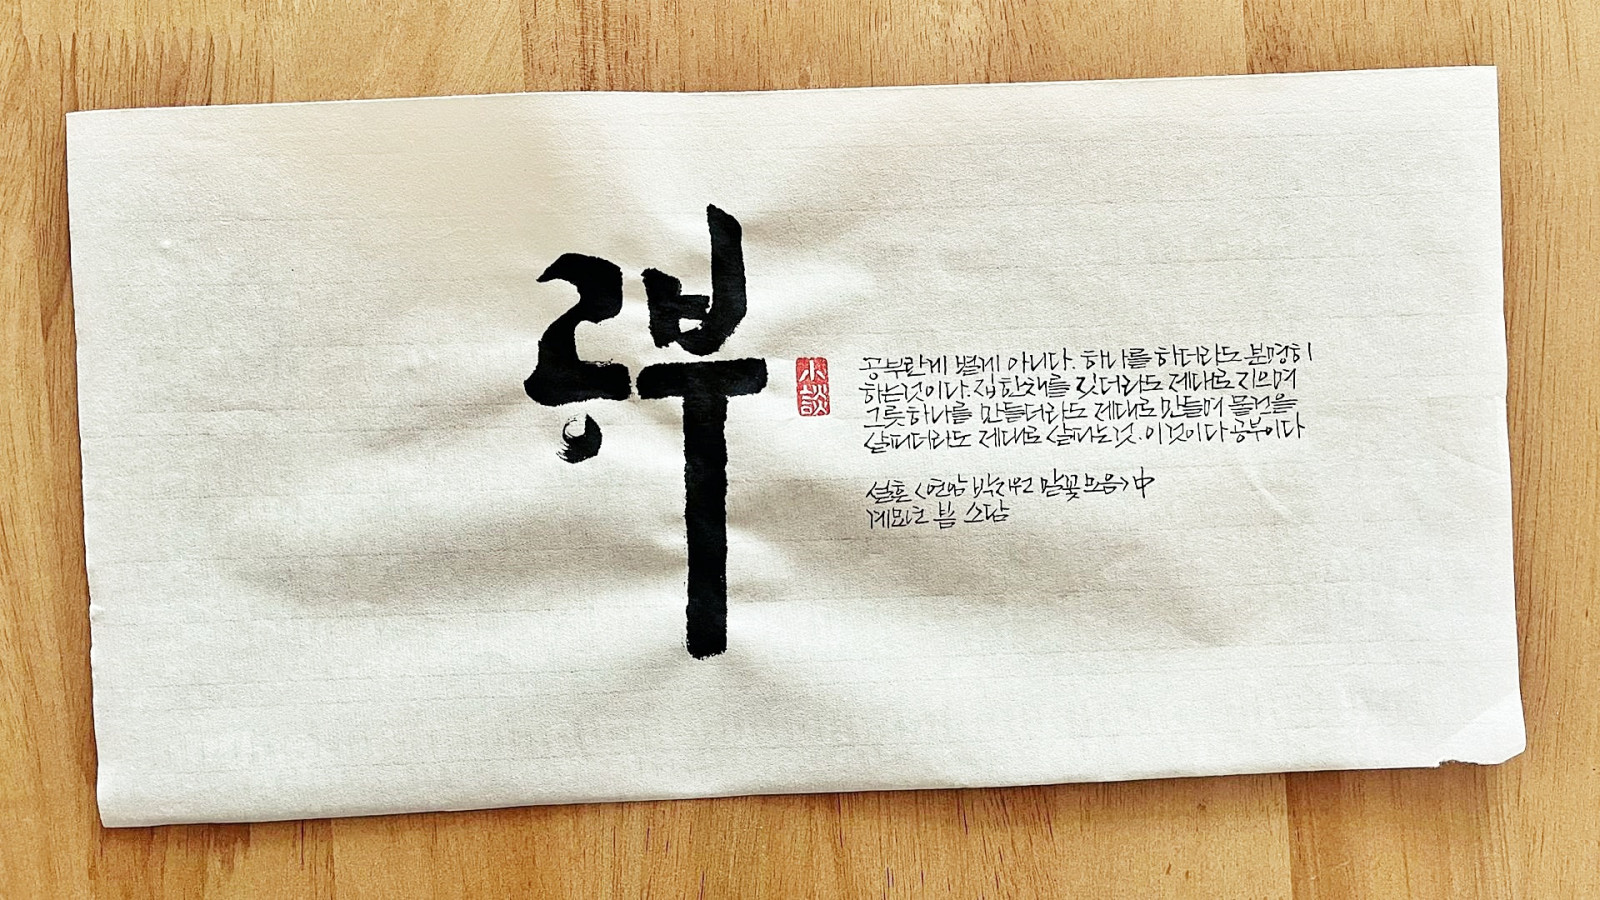 공부
小談
공부란게 별게 아니다. 하나를 하더라도 분명히
하는것이다. 집한채를 짓더라도 제대로 지으며
그릇하나를 만들더라도 제대로 만들며 물건을
살피더라도 제대로 살피는것. 이것이다 공부이다
설흔 <연암 박지원 말꽃모음> 中
계묘년 봄 소담